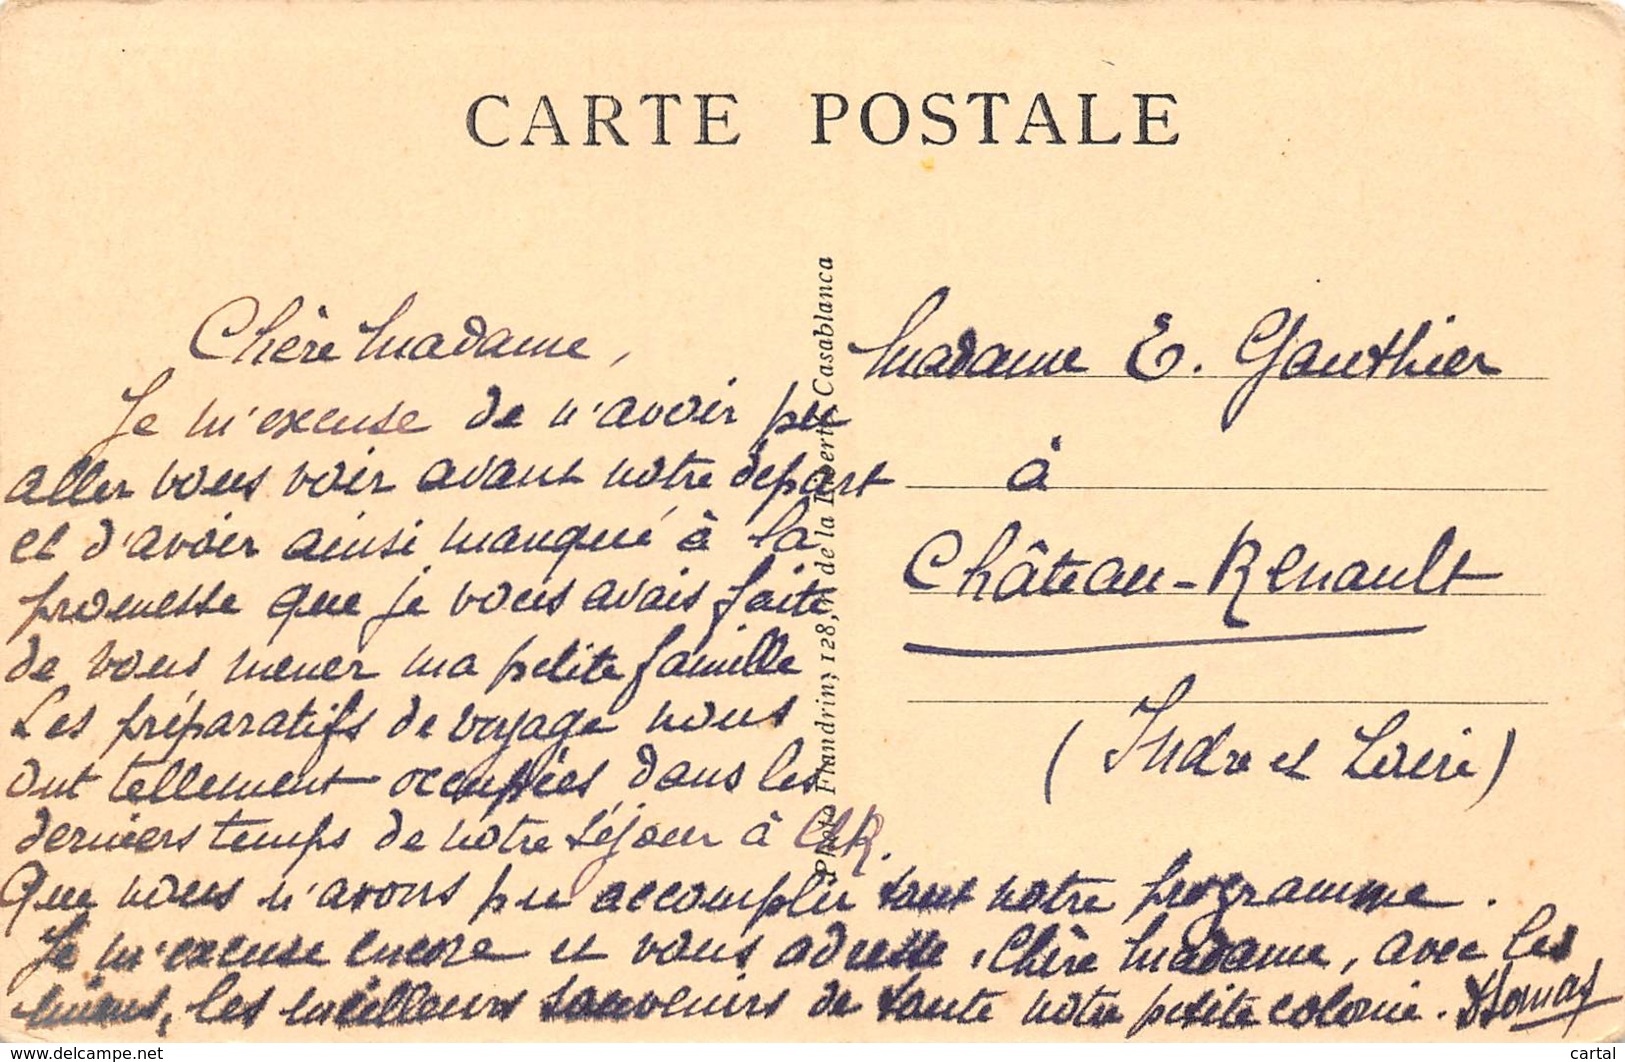 CARTE POSTALE
Chère Madame,
Je m'excuse de n'avoir pu
aller vous voir avant notre départ
et d'avoir ainsi manqué à la
promesse que je vous avais faite
de vous mener ma petite famille
Les préparatifs de voyage nous
ont tellement occupées dans les
derniers temps de notre séjour à ChR.
Que nous n'avons pu accomplir tout notre programme.
Je m'excuse encore et vous adresse, Chère Madame, avec les
miens, les meilleurs souvenirs de toute notre petite colonie.
Photo Flandrin, 128, de la Liberté Casablanca
Madame E. Gauthier
à
Château-Renault
(Indre et Loire)
cartal